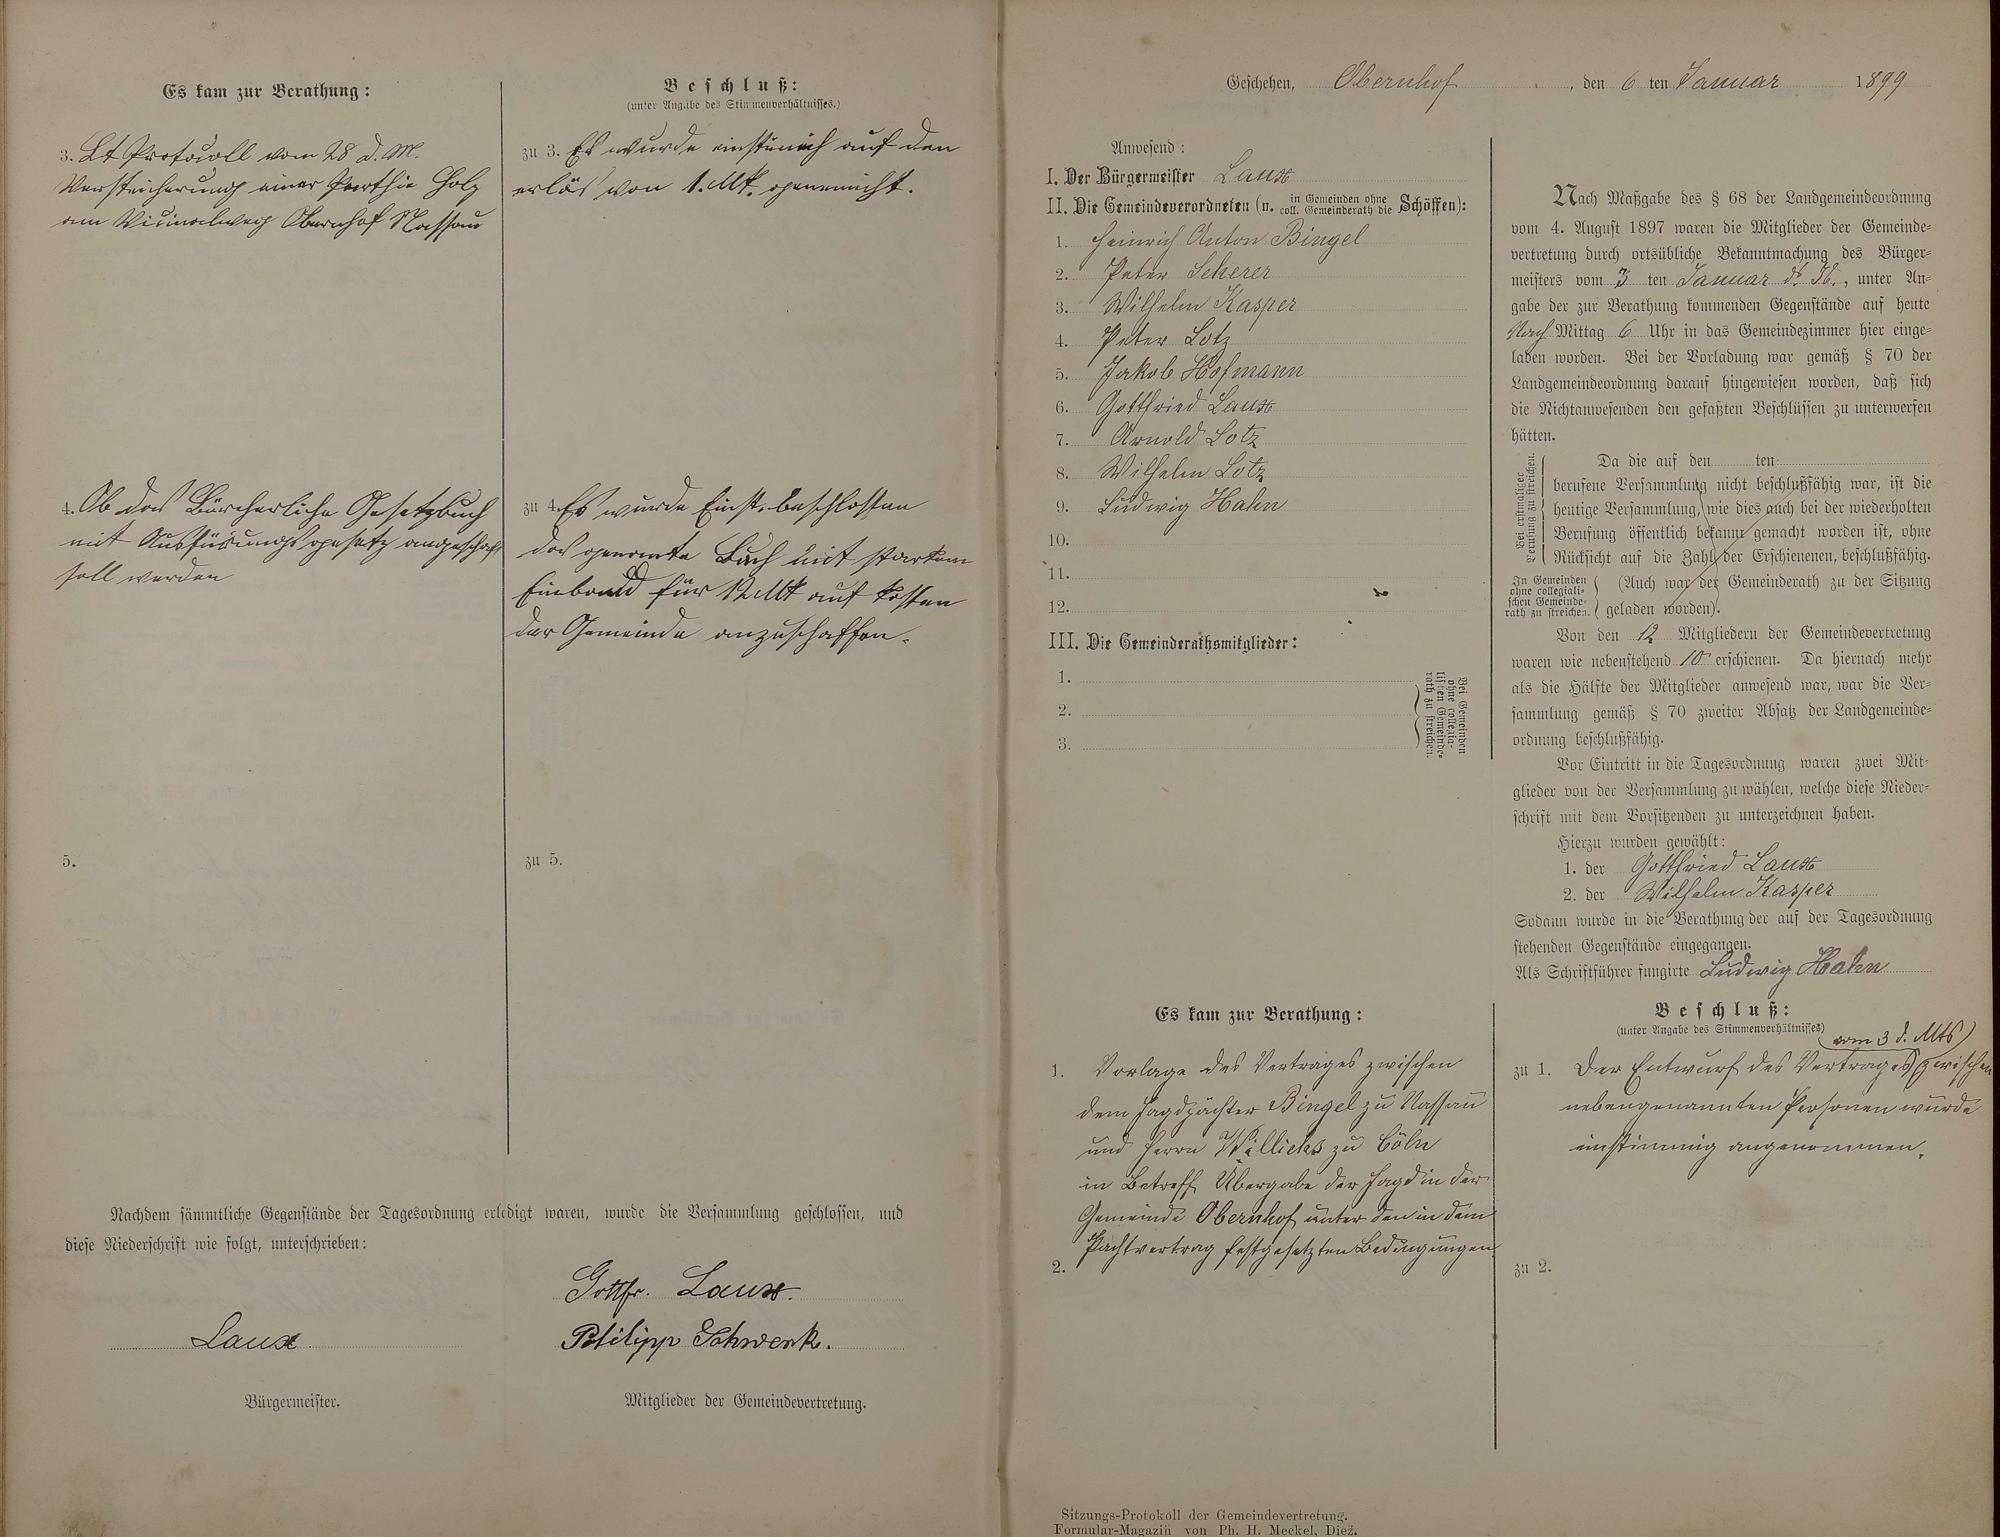 Es kam zur Berathung:
3. Lt Protocoll vom 28 d. M.
Versteicherung einer Parthie Holz
am Vicinalweg Obernhof Nassau
4. Ob das Bürcherliche Gesetzbuch
mit Ausfürungsgesetz angeschaft
soll werden
5.
Beschluß:
(unter Angabe des Stimmenverhältnisses.)
zu 3. Es wurde einstimich auf den
erlös von 1. Mk. genemicht.
zu 4. Es wurde Einst. beschlossen
das genante Buch mit starkem
Einband für 12 Mk auf kosten
der Gemeinde anzuschaffen.
zu 5.
Nachdem sämmtliche Gegenstände der Tagesordnung erledigt waren, wurde die Versammlung geschlossen, und
diese Niederschrift wie folgt, unterschrieben:
Gottfr. Laux.
Laux
Philipp Schwenk.
Bürgermeister.
Mitglieder der Gemeindevertretung.
Geschehen, Obernhof, den 6 ten Januar 1899
Anwesend:
I. Der Bürgermeister Laux
II. Die Gemeindeverordneten (u. in Gemeinden ohne coll. Gemeinderath die Schöffen):
1. Heinrich Anton Bingel
2. Peter Scherer
3. Wilhelm Kasper
4. Peter Lotz
5. Jakob Hofmann
6. Gottfried Laux
7. Arnold Lotz
8. Wilhelm Lotz
9. Ludwig Hahn
10.
11.
12.
III. Die Gemeinderathsmitglieder:
1.
2.
3.
Bei Gemeinden
ohne collegia-
lischen Gemeinde-
rath zu streichen.
Nach Maßgabe des § 68 der Landgemeindeordnung
vom 4. August 1897 waren die Mitglieder der Gemeinde-
vertretung durch ortsübliche Bekanntmachung des Bürger-
meisters vom 3 ten Januar d. Js., unter An-
gabe der zur Berathung kommenden Gegenstände auf heute
Nach Mittag 6 Uhr in das Gemeindezimmer hier einge-
laden worden. Bei der Vorladung war gemäß § 70 der
Landgemeindeordnung darauf hingewiesen worden, daß sich
die Nichtanwesenden den gefaßten Beschlüssen zu unterwerfen
hätten.
Bei erstmaliger
Berufung zu streichen.
Da die auf den ten
berufene Versammlung nicht beschlußfähig war, ist die
heutige Versammlung, wie dies auch bei der wiederholten
Berufung öffentlich bekannt gemacht worden ist, ohne
Rücksicht auf die Zahl der Erschienenen, beschlußfähig.
In Gemeinden
ohne collegiali-
schen Gemeinde-
rath zu streichen.
(Auch war der Gemeinderath zu der Sitzung
geladen worden).
Von den 12 Mitgliedern der Gemeindevertretung
waren wie nebenstehend 10 erschienen. Da hiernach mehr
als die Hälfte der Mitglieder anwesend war, war die Ver-
sammlung gemäß § 70 zweiter Absatz der Landgemeinde-
ordnung beschlußfähig.
Vor Eintritt in die Tagesordnung waren zwei Mit-
glieder von der Versammlung zu wählen, welche diese Nieder-
schrift mit dem Vorsitzenden zu unterzeichnen haben.
Hierzu wurden gewählt:
1. der Gottfried Laux
2. der Wilhelm Kasper
Sodann wurde in die Berathung der auf der Tagesordnung
stehenden Gegenstände eingegangen.
Als Schriftführer fungirte Ludwig Hahn
Es kam zur Berathung:
1. Vorlage des Vertrages zwischen
dem Jagdpächter Bingel zu Nassau
und Herrn Willicks zu Cöln
in Betreff Übergabe der Jagd in der
Gemeinde Obernhof unter den in dem
Pachtvertrag festgesetzten Bedingungen.
2.
Beschluß:
(unter Angabe des Stimmenverhältnisses)
(vom 3 d. Mts)
zu 1. Der Entwurf des Vertrages zwischen
nebengenannten Personen wurde
einstimmig angenommen.
zu 2.
Sitzungs-Protokoll der Gemeindevertretung.
Formular-Magazin von Ph. H. Meckel, Diez.